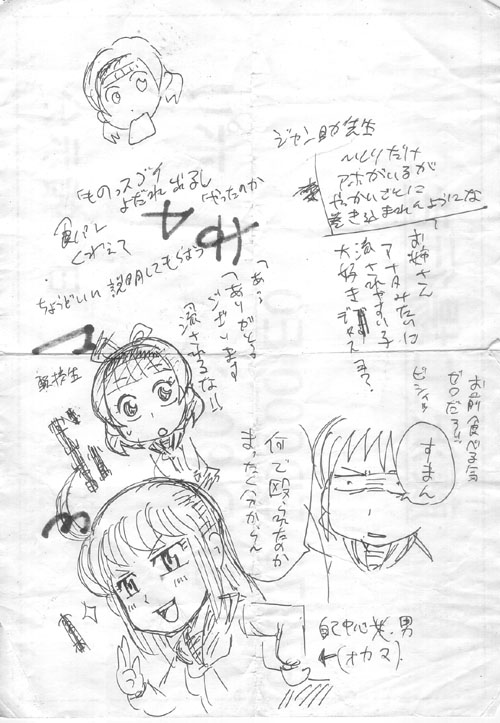 ジャン助先生
ひとりだけ
アホがいるが
やっかいごとに
巻き込まれんようにな
ものっスゴイ
よだれ出るし
やったのか
食パン
くわえて
ちょうどいい 説明してもらおう
お姉さん
アナタみたいに
流されやすい子
大好きデス
「あ、
「ありがとう
ございます
流されるな!!
お前食べる気
ゼロだろ!!
ビシィッ
すまん
何で殴られたのか
まったく分からん
自己中心 男
←(オカマ)